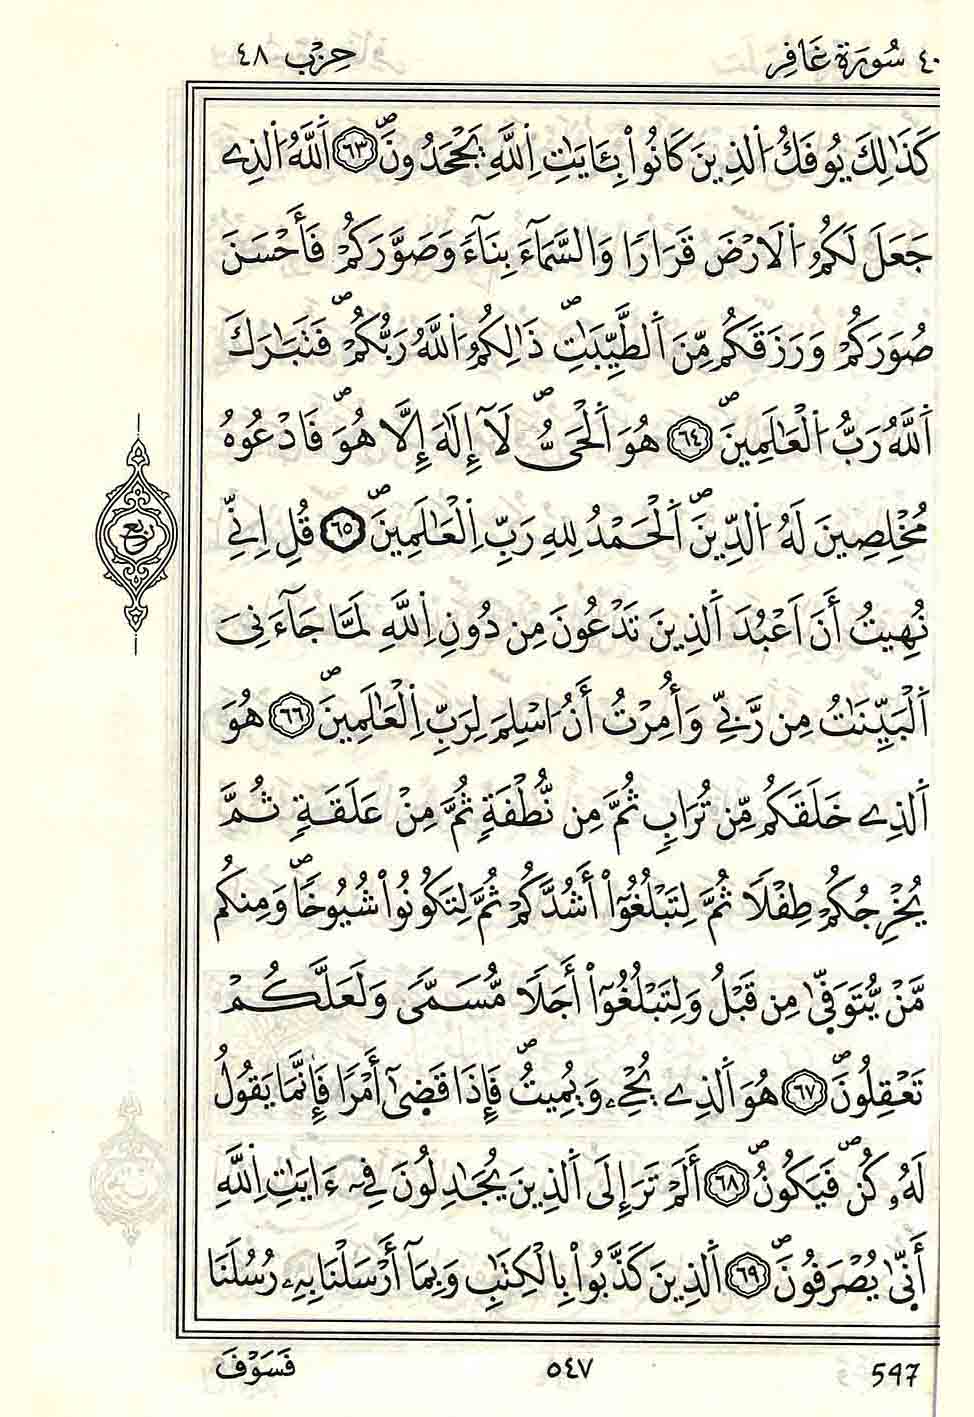 ٤٠ سُورَةُ غَافِرٍ حِزْب ٤٨
كَذَٰلِكَ يُوفَكُ اُ۬لذِينَ كَانُواْ بِـَٔايَٰتِ اِ۬للَّهِ يَجْحَدُونَۖ ٦٣ اَ۬للَّهُ اُ۬لذِے
جَعَلَ لَكُمُ اُ۬لَارْضَ قَرَاراٗ وَالسَّمَآءَ بِنَآءٗ وَصَوَّرَكُمْ فَأَحْسَنَ
صُوَرَكُمْ وَرَزَقَكُم مِّنَ اَ۬لطَّيِّبَٰتِۖ ذَٰلِكُمُ اُ۬للَّهُ رَبُّكُمْۖ فَتَبَٰرَكَ
اَ۬للَّهُ رَبُّ اُ۬لْعَٰلَمِينَۖ ٦٤ هُوَ اَ۬لْحَيُّۖ لَآ إِلَٰهَ إِلَّا هُوَۖ فَادْعُوهُ
مُخْلِصِينَ لَهُ اُ۬لدِّينَۖ اَ۬لْحَمْدُ لِلهِ رَبِّ اِ۬لْعَٰلَمِينَۖ ٦٥ قُلِ اِنِّے
نُهِيتُ أَنَ اَعْبُدَ اَ۬لذِينَ تَدْعُونَ مِن دُونِ اِ۬للَّهِ لَمَّا جَآءَنِيَ
اَ۬لْبَيِّنَٰتُ مِن رَّبِّے وَأُمِرْتُ أَنُ اسْلِمَ لِرَبِّ اِ۬لْعَٰلَمِينَۖ ٦٦ هُوَ
اَ۬لذِے خَلَقَكُم مِّن تُرَابٖ ثُمَّ مِن نُّطْفَةٖ ثُمَّ مِنْ عَلَقَةٖ ثُمَّ
يُخْرِجُكُمْ طِفْلاٗ ثُمَّ لِتَبْلُغُوٓاْ أَشُدَّكُمْ ثُمَّ لِتَكُونُواْ شُيُوخاٗۖ وَمِنكُم
مَّنْ يُّتَوَفّ۪ىٰ مِن قَبْلُ وَلِتَبْلُغُوٓاْ أَجَلاٗ مُّسَمّىٗ وَلَعَلَّكُمْ
تَعْقِلُونَۖ ٦٧ هُوَ اَ۬لذِے يُحْيِۦ وَيُمِيتُۖ فَإِذَا قَض۪ىٰٓ أَمْراٗ فَإِنَّمَا يَقُولُ
لَهُۥ كُنْۖ فَيَكُونُۖ ٦٨ أَلَمْ تَرَ إِلَى اَ۬لذِينَ يُجَٰدِلُونَ فِےٓ ءَايَٰتِ اِ۬للَّهِ
أَنّ۪ىٰ يُصْرَفُونَۖ ٦٩ اَ۬لذِينَ كَذَّبُواْ بِالْكِتَٰبِ وَبِمَآ أَرْسَلْنَا بِهِۦ رُسُلَنَا
ربع
547 ٥٤٧ فَسَوْفَ